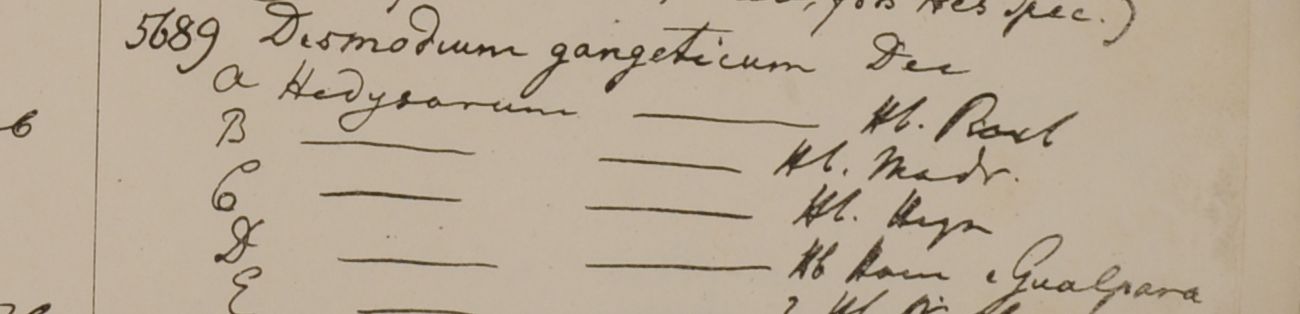 Hes Spec.)
5689 Desmodium gangeticum Dec
a Hedysarum ——— Hb. Roxb
B ——— ——— Hb. Madr.
C ——— ——— Hb. Heyn
D ——— ——— Hb Ham e Gualpara
E ——— Hb
6